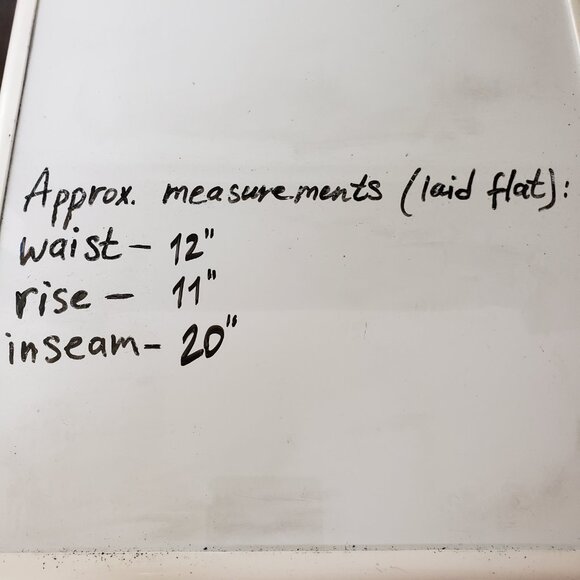 Approx. measurements (laid flat):
waist - 12"
rise - 11"
inseam - 20"